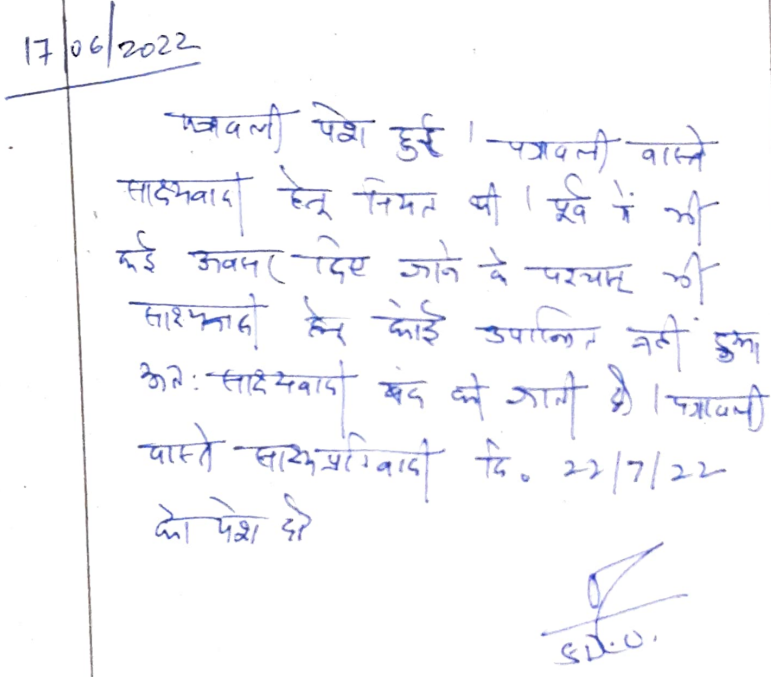 17/06/2022
पत्रावली पेश हुई । पत्रावली वास्ते
साक्ष्यवादी हेतु नियत थी । पूर्व में भी
कई अवसर दिए जाने के पश्चात् भी
साक्ष्यवादी हेतु कोई उपस्थित नहीं हुआ
अतः साक्ष्यवादी बंद की जाती है । पत्रावली
वास्ते साक्ष्य प्रतिवादी दि. 22/7/22
को पेश हो
S.D.O.